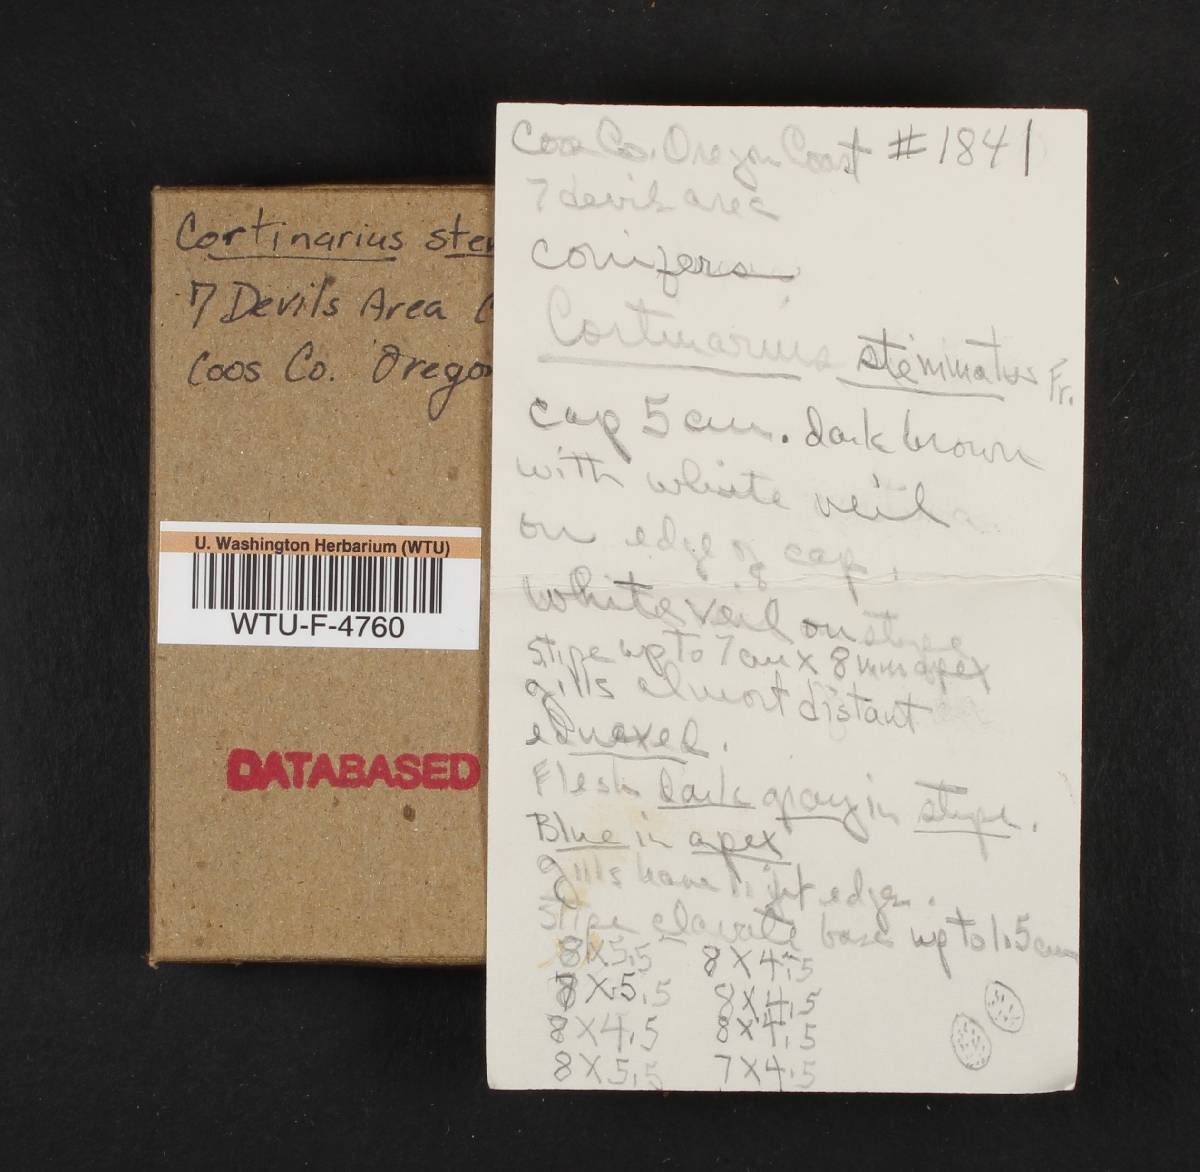 Cortinarius ste
7 Devils Area C
Coos Co. Orego
U. Washington Herbarium (WTU)
WTU-F-4760
DATABASED
Coos Co. Oregon Coast #1841
7 devils area
conifers
Cortinarius steminatus Fr.
cap 5 cm. dark brown
with white veil
on edge of cap.
white veil on stipe
stipe up to 7 cm x 8 mm apex
gills almost distant
adnexed.
Flesh dark gray in stipe.
Blue in apex
gills have light edges.
Stipe clavate base up to 1.5 cm
8 X 5.5 8 X 4.5
8 X 5.5 8 X 4.5
8 X 4.5 8 X 4.5
8 X 5.5 7 X 4.5